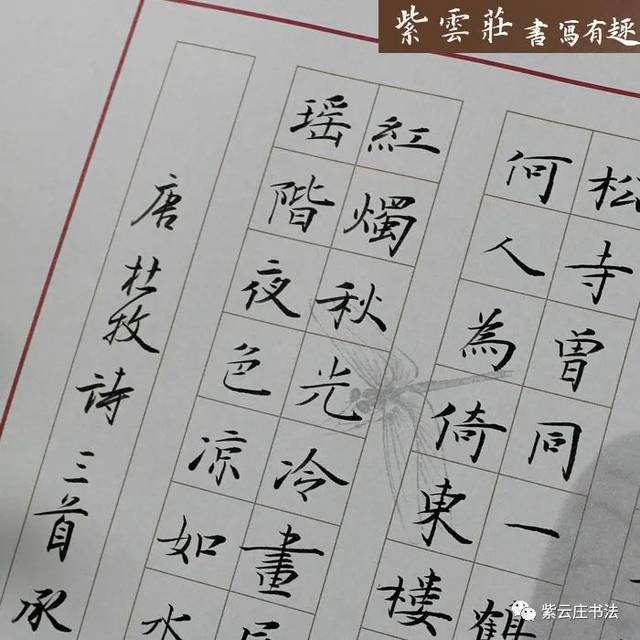 紫雲莊 書寫有趣
松寺曾同一鶴
何人為倚東樓
紅燭秋光冷畫
瑶階夜色凉如水
唐杜牧詩三首承
紫云庄书法